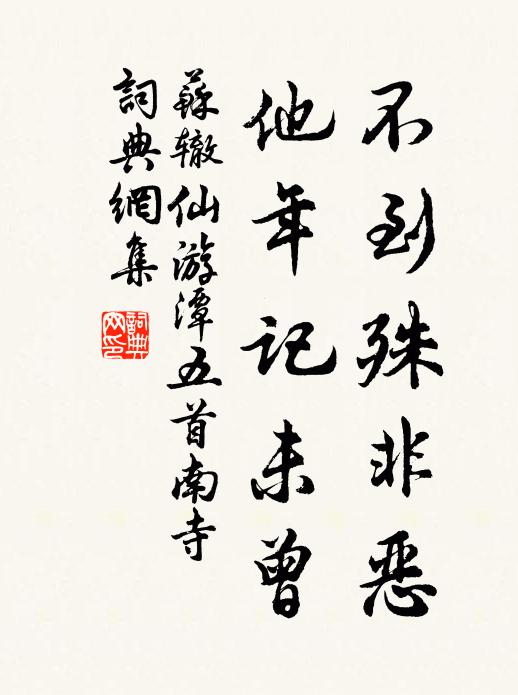 不到殊非恶
他年记未曾
蘇辙仙游潭五首南寺
詞典網集
詞典網印